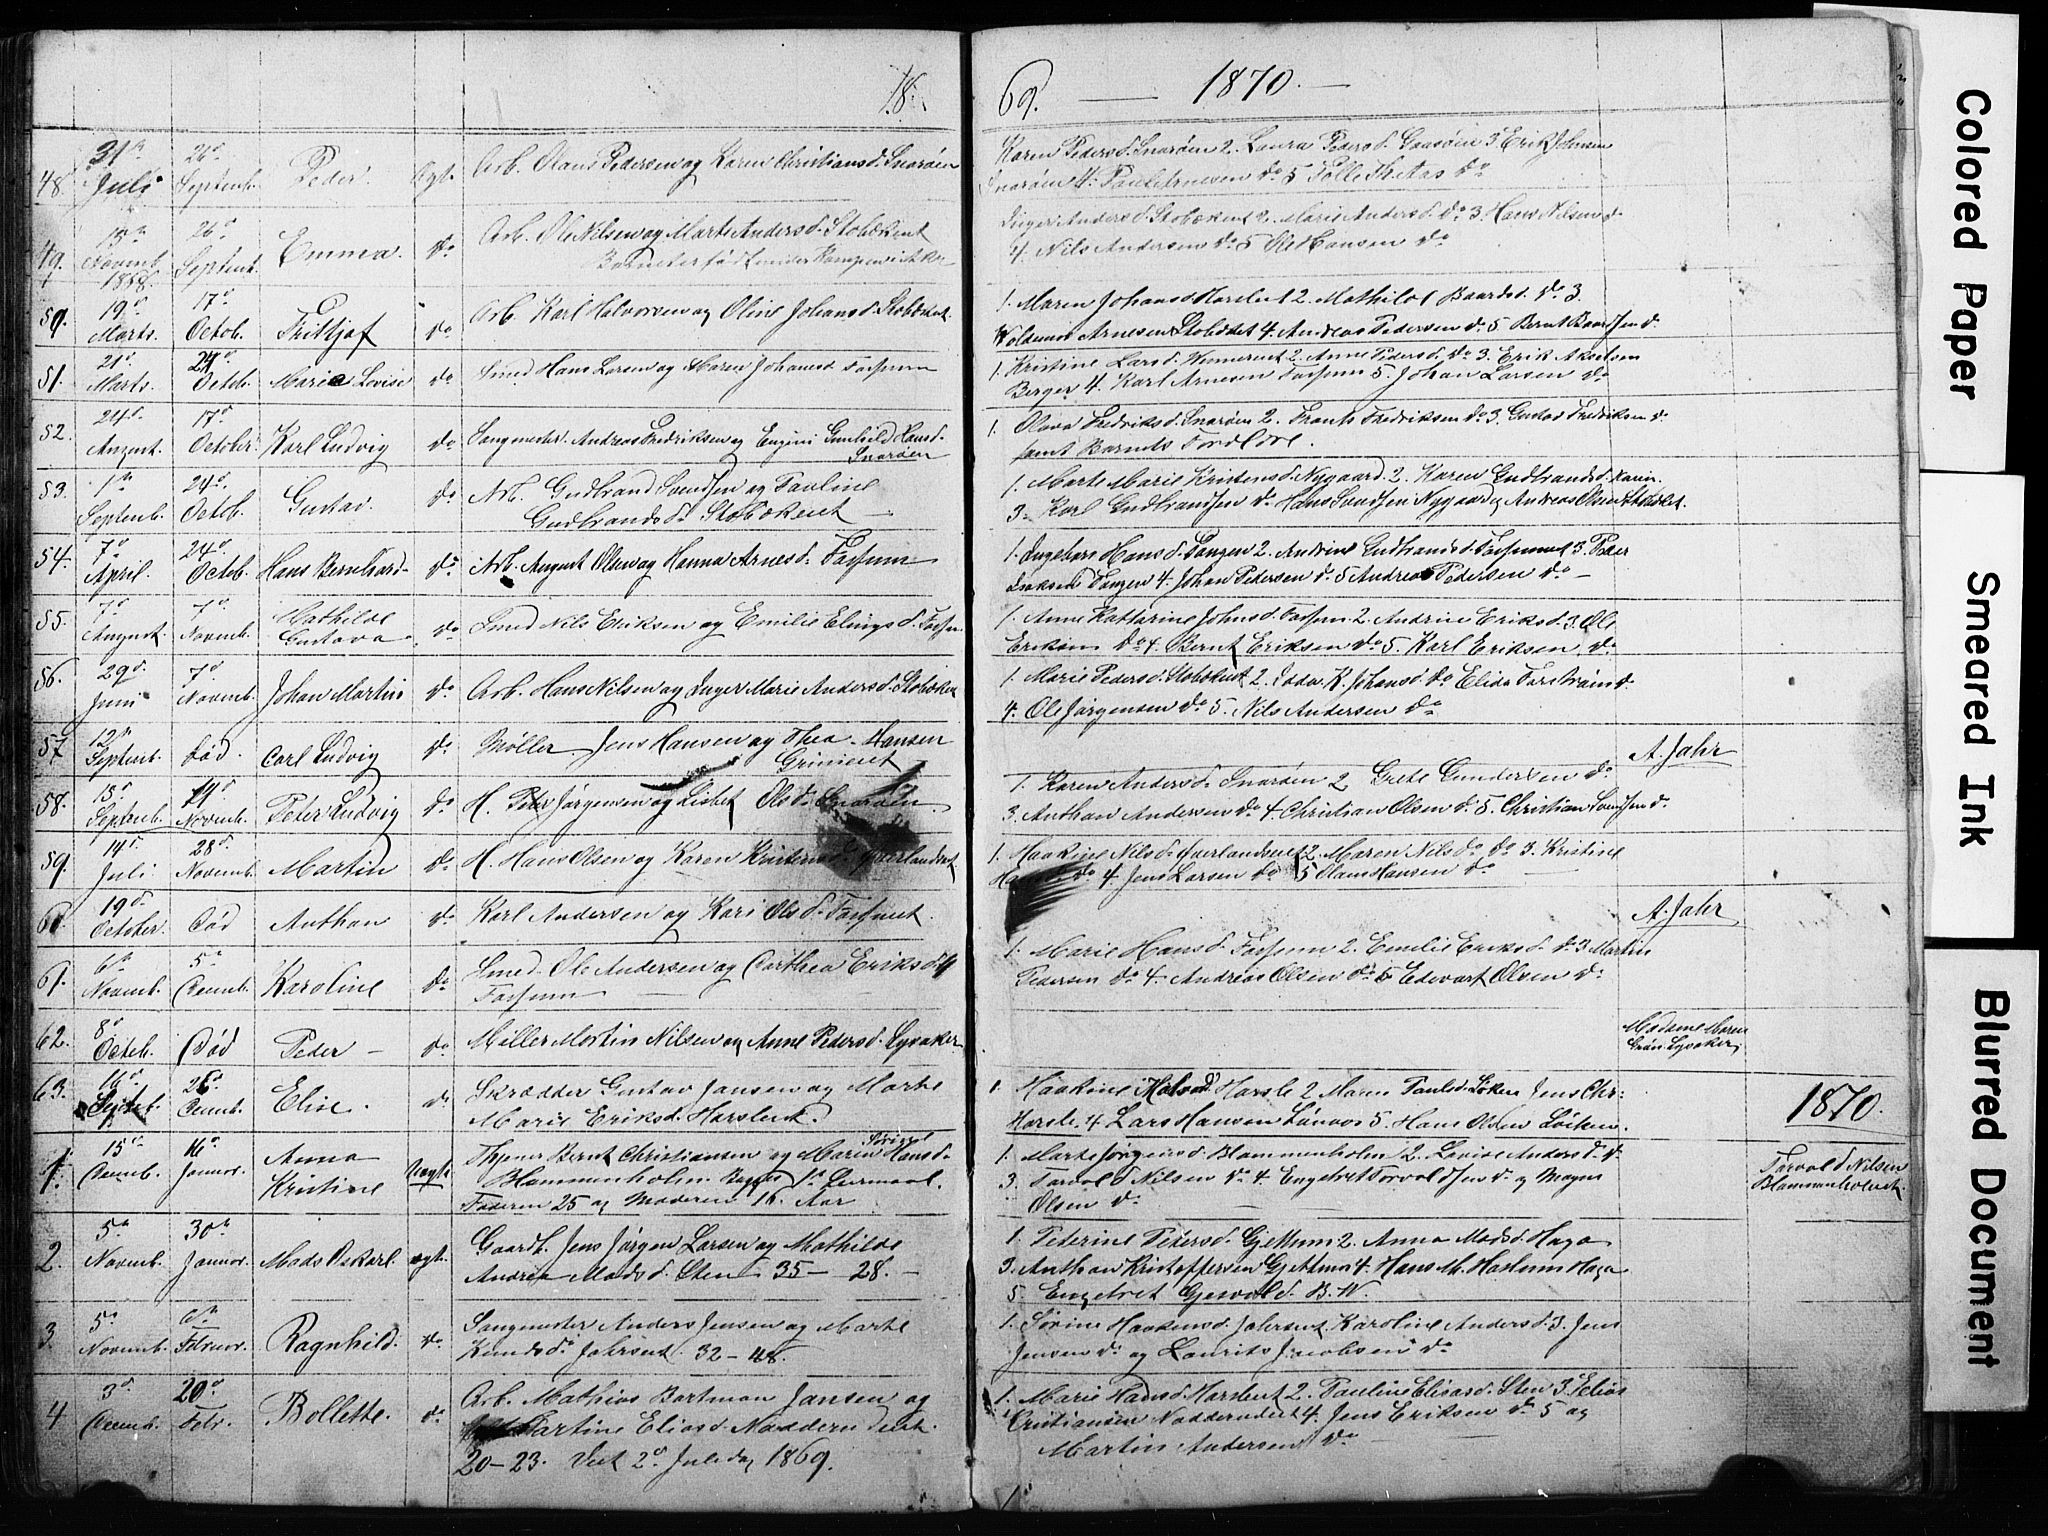 18
69. — 1870. —
48. 31te Juli 26d Septemb. Peder. Ægt. Arb. Olaus Pedersen og Karen Christiansd. Snarøen
Karen Pedersd. Snarøen 2. Laura Pedersd. 3 Erik Johnsen
Snarøen 4. Paul Arnesen do 5
49. Novemb. 1868 26d Septemb. Emma. do Arb. Ole Nilsen og Marte Andersd. Stobækent
Barnet er født under
Inger Andersd. Stobækent 2. Marie Andersd. do 3. Hans Nilsen do
4. Nils Andersen do 5 Ole Hansen do
50. 19d Marts. 17d Octob. Frittjof do Arb. Karl Halvorsen og Oline Johansd. Stobækent.
1. Maren Johansd. Harslet 2. Mathilde Baardsd. do 3.
Woldemar Arnesen Stobækket 4. Andreas Pedersen do 5 Bernt Baardsen do
51. 21d Marts. 24d Octob. Marie Lovise do Smed Hans Larsen og Maren Johansd Fossum
1. Kristine Larsd. 2. Anne Pedersd. do 3. Erik Akselsen
Berger 4. Karl Arnesen Fossum 5. Johan Larsen do
52. 24d August. 17d October. Karl Ludvig do Saugmester. Andreas Fredriksen og Engini Gunhild Hansd.
Snarøen
1. Olava Fredriksd. Snarøen 2. Frants Fredriksen do 3. Gustav Fredriksen do
samt Barnets Forældre.
53. 1te Septemb. 24d Octob. Gustav. do Arb. Gudbrand Svendsen og Pauline
Gudbrandsd. Stobækent
1. Marte Marie Kristensd. Nygaard. 2. Karen Gudbrandsd.
3. Karl Gudbrandsen do Hans Svendsen Nygaard og Andreas Olsen Stobækket.
54. 7d April. 24d Octob. Hans Bernhard do Arb. August Olsen og Hanna Arnesd. Fossum
1. Ingebor Hansd. Tangen 2. Andrine Gudbrandsd. Fossumet 3. Peder
Tangen 4. Johan Pedersen do 5 Andreas Pedersen do —
55. 7d August. 7d Novemb. Mathilde
Gustava do Smed Nils Eriksen og Emilie Elingsd. Fossum
1. Anne Katharine Johnsd. Fossum 2. Andrine Eriksd. 3. Ole
Eriksen do 4. Bernt Eriksen do 5. Karl Eriksen do
56. 29d Juni 7d Novemb. Johan Martin do Arb. Hans Nilsen og Inger Marie Andersd. Stobækent
1. Marie Pedersd. Stobækent 2. K. Johansd. do Elida do
4. Ole Jørgensen do 5. Nils Andersen do
57 12te Septemb. Død Carl Ludvig do Møller Jens Hansen og Thea Hansen
Griniert
A. Jahr
58. 13d Septemb. 14d Novemb. Peter Ludvig do H. Peder Jørgensen og Lisbet Olsd. Snarøen
1. Karen Andersd. Snarøen 2 Grete Gundersen do
3. Anthon Andersen do 4. Christian Olsen do 5. Christian Svendsen do
59. 14d Juli 28d Novemb. Martin do H. Hans Olsen og Karen Kristensd. Øverlandset
1. Haakine Nilsd. Øverlandseie 2. Maren Nilsd. do 3. Kristine
do 4. Jens Larsen do 5 Olaus Hansen do
60. 19d October. Død Anthon do Karl Andersen og Kari Olsd. Fossumet.
A. Jahr
61. 6te Novemb. 5te Decemb. Karoline do Smed Ole Andersen og Carthea Eriksd.
Fossum
1. Marie Hansd. Fossum 2. Emelie Eriksd. do 3 Martin
Pedersen do 4. Andreas Olsen do 5 Edvart Olsen do
62. 8d Octob. Død Peder — do Møller Martin Nilsen og Anne Pedersd. Lysaker
Madame Maren
Grøn Lysaker
63. 16d Septb. 26d Decemb. Elise. do Skrædder Gustav Jansen og Marte
Marie Eriksd. Harslent.
1. Haakine Harsle 2 Maren Paulsd. Løken Jens Chr:
Harsle. 4 Lars Hansen 5. Hans Olsen Løken.
1870.
1. 15d Decemb. 16d Januar. Anna
Kristine Uægte Bernt Christiansen og Maren Hansd.
Blommenholm
Faderen 25 og Moderen 16 Aar
1. Marte Jørgensd. Blommenholm 2. Lovise Andersd. do
3. Torvald Nilsen do 4. Engebret Torvaldsen do og Magnus
Olsen do
Torvald Nilsen
Blommenholmt.
2. 5te Novemb. 30te Januar. Mads Oskar. ægt. Gaardb. Jens Jørgen Larsen og Mathilde
Andrea Madsd. Sten 35 — 28. —
1. Peterine Pedersd. Gjettum 2. Anna Madsd. Haga
3. Anthon Kristoffersen Gjettum 4. Hans M. Haslum Haga
5. Engebret B. W.
3. 5te Novemb. 6te Februar. Ragnhild. do Saugmester Anders Jensen og Marte
Knudsd. Jahrsent. 32 — 48.
1. Sørine Haakensd. Jahrsent. Karoline Andersd. 3. Jens
Jensen do og Laurits Jacobsen do
4 3d Decemb. 20d Febr. Bollette. do Arb. Mathias Bartman Jansen og
Martine Eliasd. Nadderudeie.
20 — 23. Viet 2d Juledag 1869.
1. Marie Hansd. Harslent 2. Pauline Eliasd. Sten 3. Elias
Cristiansen Nadderudeie 4. Jens Eriksen do 5 og
Martin Andersen do
Colored Paper
Smeared Ink
Blurred Document